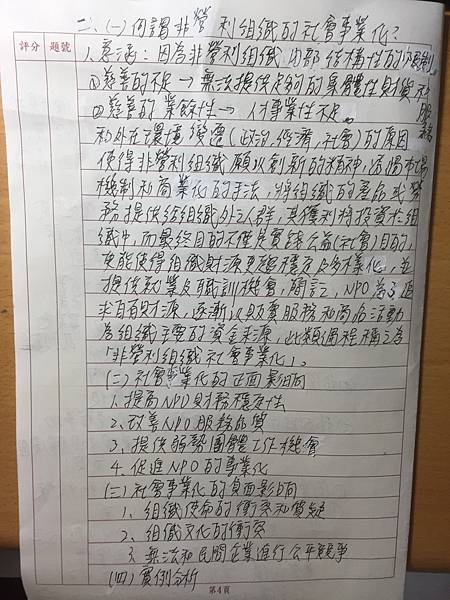 二、(一)何謂非營利組織的社會事業化?
評分 題號
1.意涵:因為非營利組織內部結構性的限制。
①慈善的不足→無法提供足夠的集體性財貨和服務
②慈善的業餘性→人事業性不足。
和外在環境變遷(政治,經濟,社會)的原因
使得非營利組織願以創新的精神,透過市場
機制和商業化的手法,將組織的產品或勞
務提供給組織外之人群,其獲利將投資於組
織中,而最終目的不僅是實踐公益(社會)目的,
更能使得組織財源更趨穩定及多樣化,並
提供就業及職訓機會,簡言之,NPO為了追
求自有財源,逐漸以收費服務和商品活動
為組織主要的資金來源,此類過程稱之為
「非營利組織社會事業化」。
(二)社會事業化的正面影響
1.提高NPO財務穩定性
2.改善NPO服務品質
3.提供弱勢團體工作機會
4.促進NPO的專業化
(三)社會事業化的負面影響
1.組織使命的衝突和質疑
2.組織文化的衝突
3.無法和民間企業進行公平競爭
(四)實例分析
第4頁